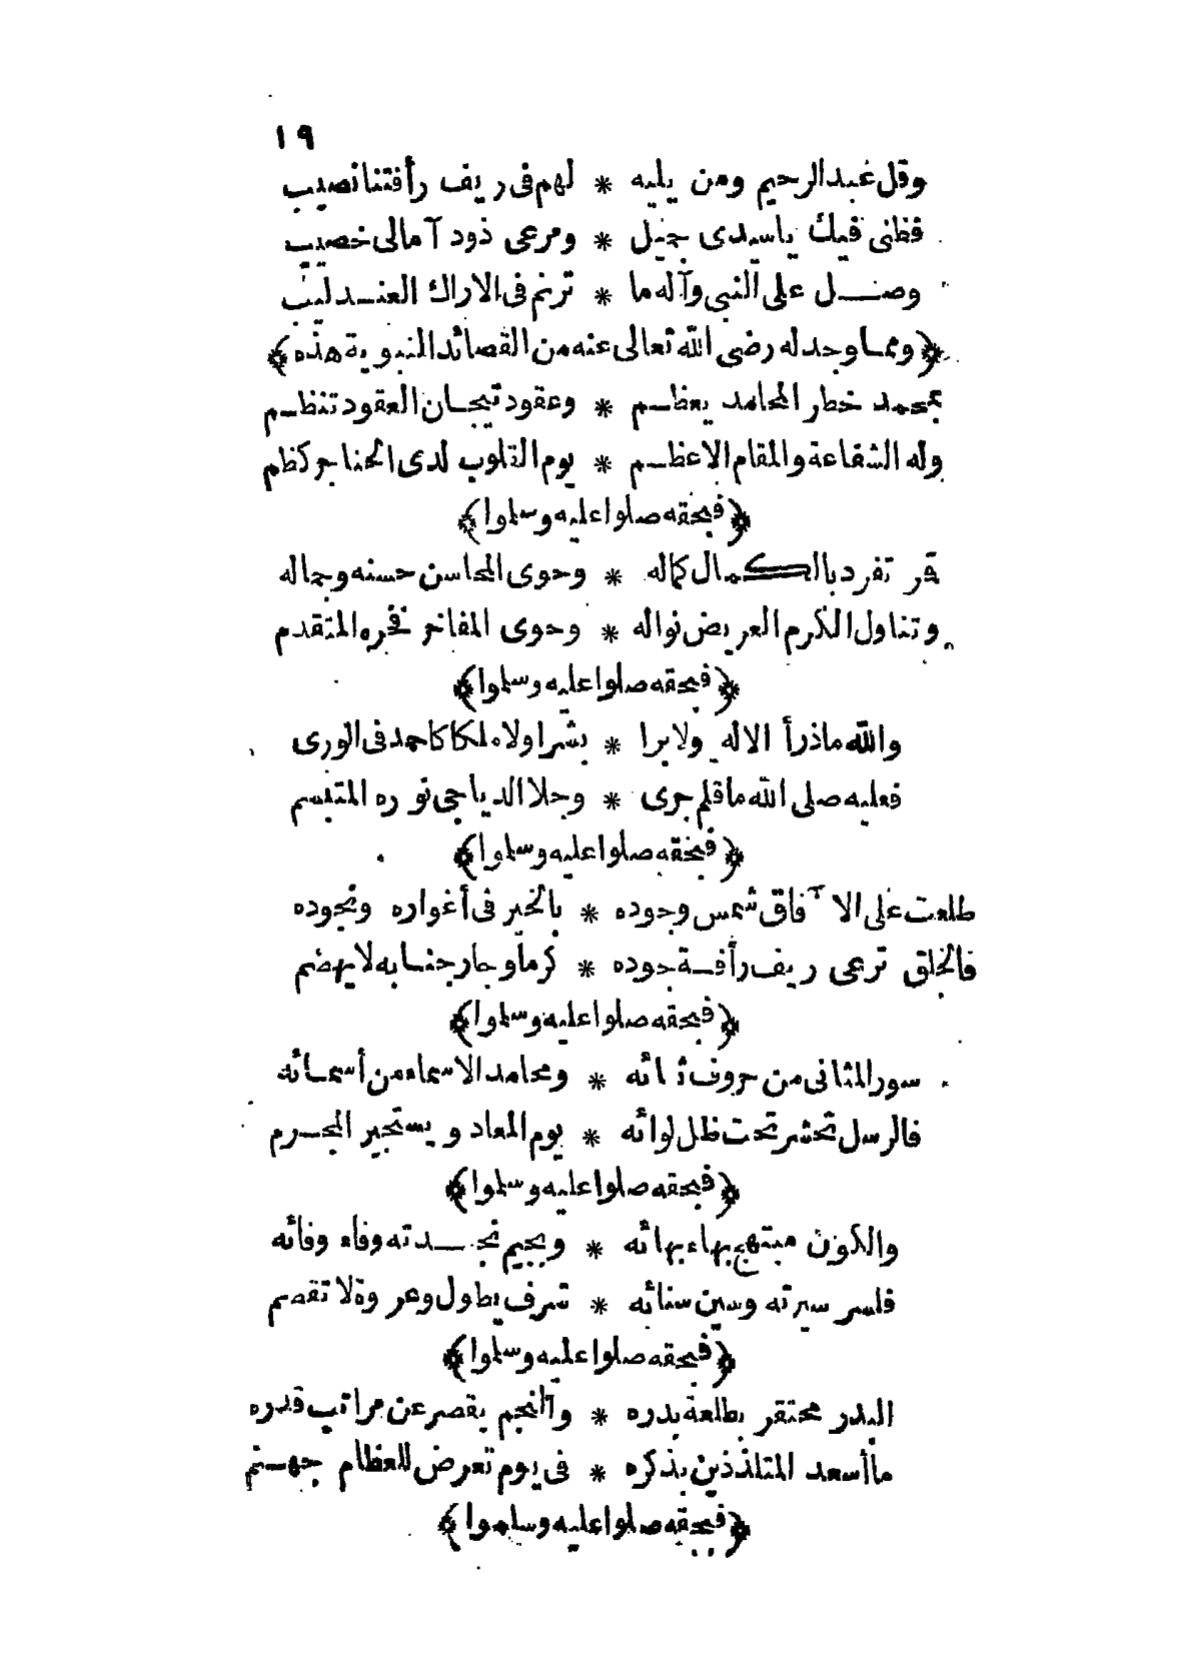 ١٩
وقل عبد الرحيم ومن يليه * لهم فى ريف رأفتنا نصيب
فظنى فيك ياسيدى جميل * ومرعى ذود آمالى خصيب
وصل على النبى وآله ما * ترنم فى الاراك العندليب
﴿ومما وجد له رضى الله تعالى عنه من القصائد النبوية هذه﴾
بمحمد خطر المحامد يعظم * وعقود تيجان العقود تنظم
وله الشفاعة والمقام الاعظم * يوم القلوب لدى الحناجر كظم
﴿فبحقه صلوا عليه وسلموا﴾
قر تفرد بالكمال كماله * وحوى المحاسن حسنه وجماله
وتناول الكرم العريض نواله * وحوى المفاخر فخره المتقدم
﴿فبحقه صلوا عليه وسلموا﴾
والله ماذرأ الاله ولا برا * بشرا ولا ملكا كاحمد فى الورى
فعليه صلى الله ماقلم جرى * وجلا الدياجى نوره المتبسم
﴿فبحقه صلوا عليه وسلموا﴾
طلعت على الآفاق شمس وجوده * بالخير فى أغواره ونجوده
فالخلق ترعى ريف رأفة جوده * كرما وجار جنابه لا يهضم
﴿فبحقه صلوا عليه وسلموا﴾
سور المثانى من حروف ثنائه * ومحامد الاسماء من أسمائه
فالرسل تحشر تحت ظل لوائه * يوم المعاد ويستجير المجرم
﴿فبحقه صلوا عليه وسلموا﴾
والكون مبتهج بهاء بهائه * وبجيم نجدته وفاء وفائه
فلسر سيرته وسين سنائه * شرف يطول وعروة لا تقصم
﴿فبحقه صلوا عليه وسلموا﴾
البدر محتقر بطلعة بدره * والنجم يقصر عن مراتب قدره
ما أسعد المتلذذين بذكره * فى يوم تعرض للعظام جهنم
﴿فبحقه صلوا عليه وسلموا﴾